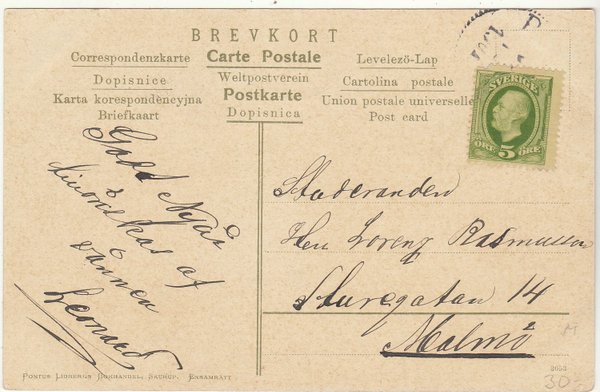 BREVKORT
Correspondenzkarte
Carte Postale
Levelező-Lap
Dopisnice
Weltpostverein
Cartolina postale
Karta korespondencyjna
Postkarte
Union postale universelle
Briefkaart
Dopisnica
Post card
SVERIGE
ÖRE 5 ÖRE
Godt Nyår
tillönskas af
vännen
Leonard
Studeranden
Herr Lorenz Rasmussen
Sturegatan 14
Malmö
PONTUS LIDBERGS BOKHANDEL, SKURUP. ENSAMRÄTT
30